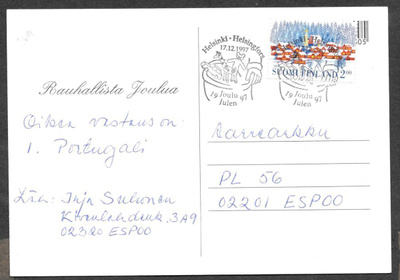 Helsinki - Helsingfors
17.12.1997
19 Joulu 97
Julen
Helsinki - Helsingfors
19 Joulu 97
Julen
SUOMI FINLAND 2,00
Rauhallista Joulua
Oikea vastaus on:
1. Portugali
Aarrearkku
PL 56
02201 ESPOO
Suhonen
3A9
02320 ESPOO